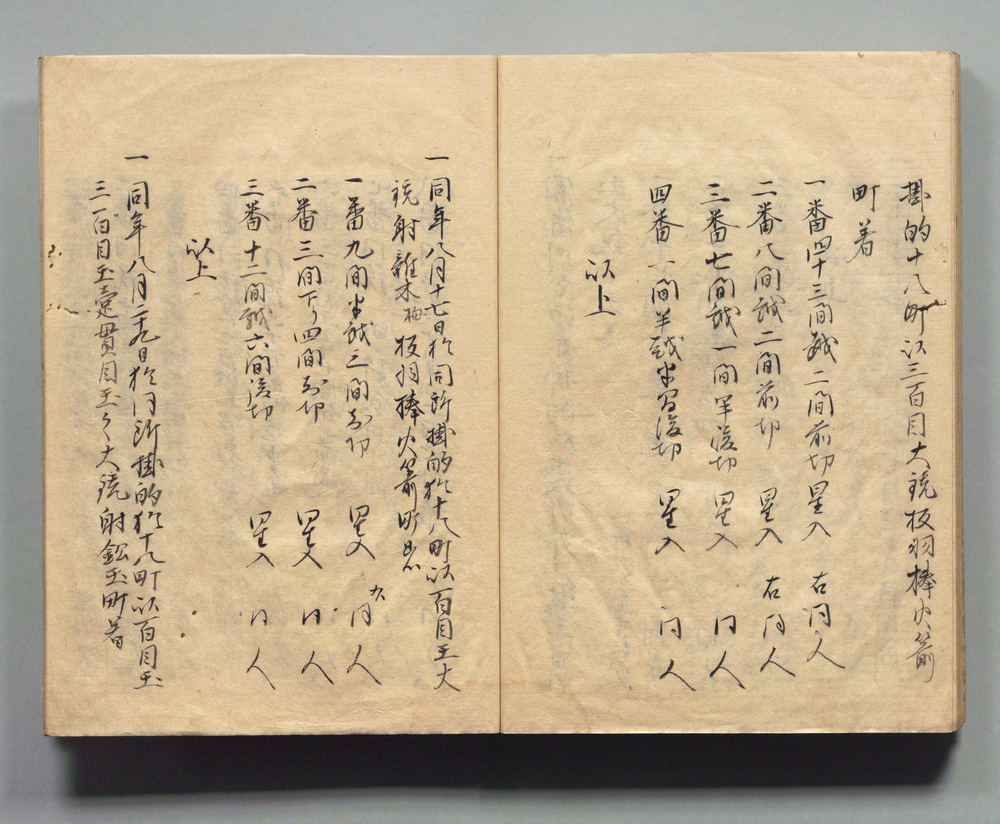 掛的十八町以三百目大銃板羽棒火箭
町着
一番四十三間越二間前切 星入 右同人
二番八間越二間前切 星入 右同人
三番七間越一間半後切 星入 同人
四番一間半越半間後切 星入 同人
以上
一同年八月十七日於同所掛的於十八町以百目玉大
銃射雑木板羽棒火箭町着
一番九間半越三間前切 星入 右同人
二番三間下り四間前切 星入 同人
三番十二間越六間後切 星入 同人
以上
一同年八月廿九日於同所掛的於十八町以百目玉
三百目玉壱貫目玉之大銃射鉛玉町着